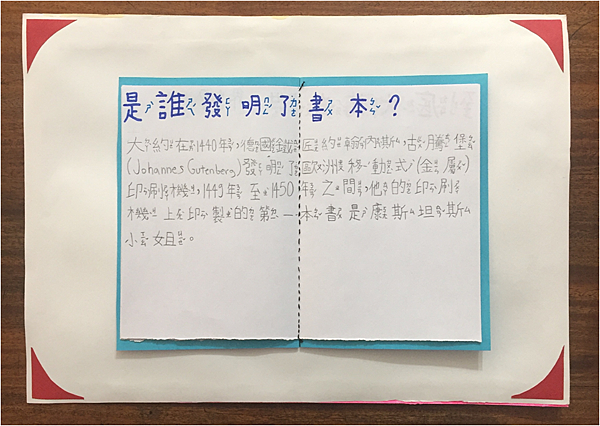 是誰發明了書本？
大約在1440年，德國金匠約翰內斯，古騰堡
(Johannes Gutenberg)發明了歐洲移動式(金屬)
印刷機，1449年至1450年之間，他的印刷
機上在印製的第一本書是康斯坦斯
小姐。